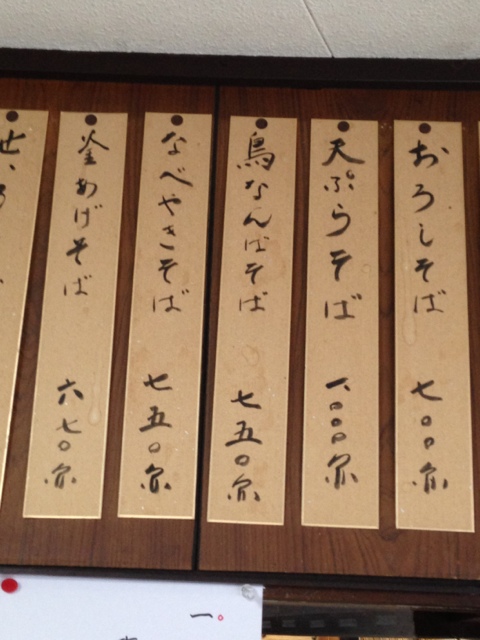 おろしそば 七〇〇尓
天ぷらそば 一、〇〇〇尓
鳥なんばそば 七五〇尓
なべやきそば 七五〇尓
釜あげそば 六七〇尓
せいろ
一。